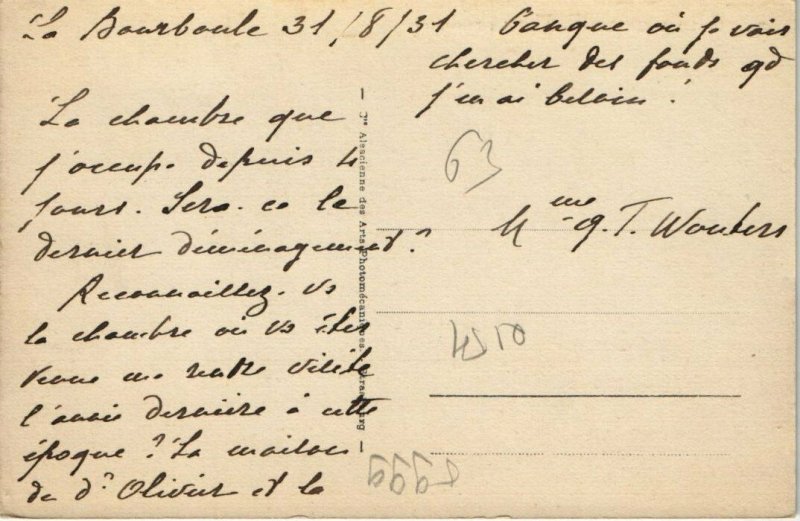 La Bourboule 31/8/31
La chambre que
j'occupe depuis 4
jours. Sera-ce le
dernier déménagement?
Reconnaissez-vs
la chambre où vs êtes
venue me rendre visite
l'année dernière à cette
époque? La maison
de dr Olivier et la
banque où je vais
chercher des fonds qd
j'en ai besoin!
63
Mme G. T. Wouters
4510
Jse Alsacienne des Arts Photomécaniques, Strasbourg